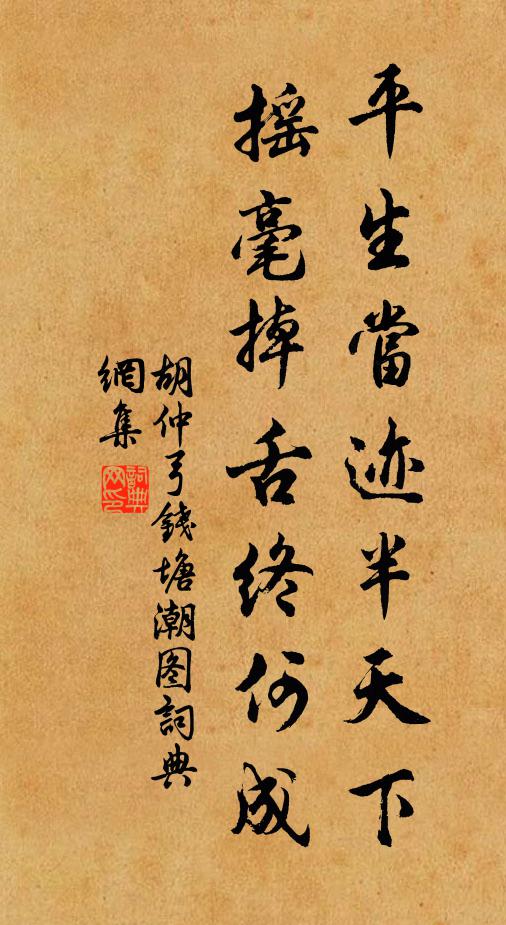 平生當迹半天下
摇毫掉舌終何成
胡仲弓錢塘潮图詞典
網集
詞典網印